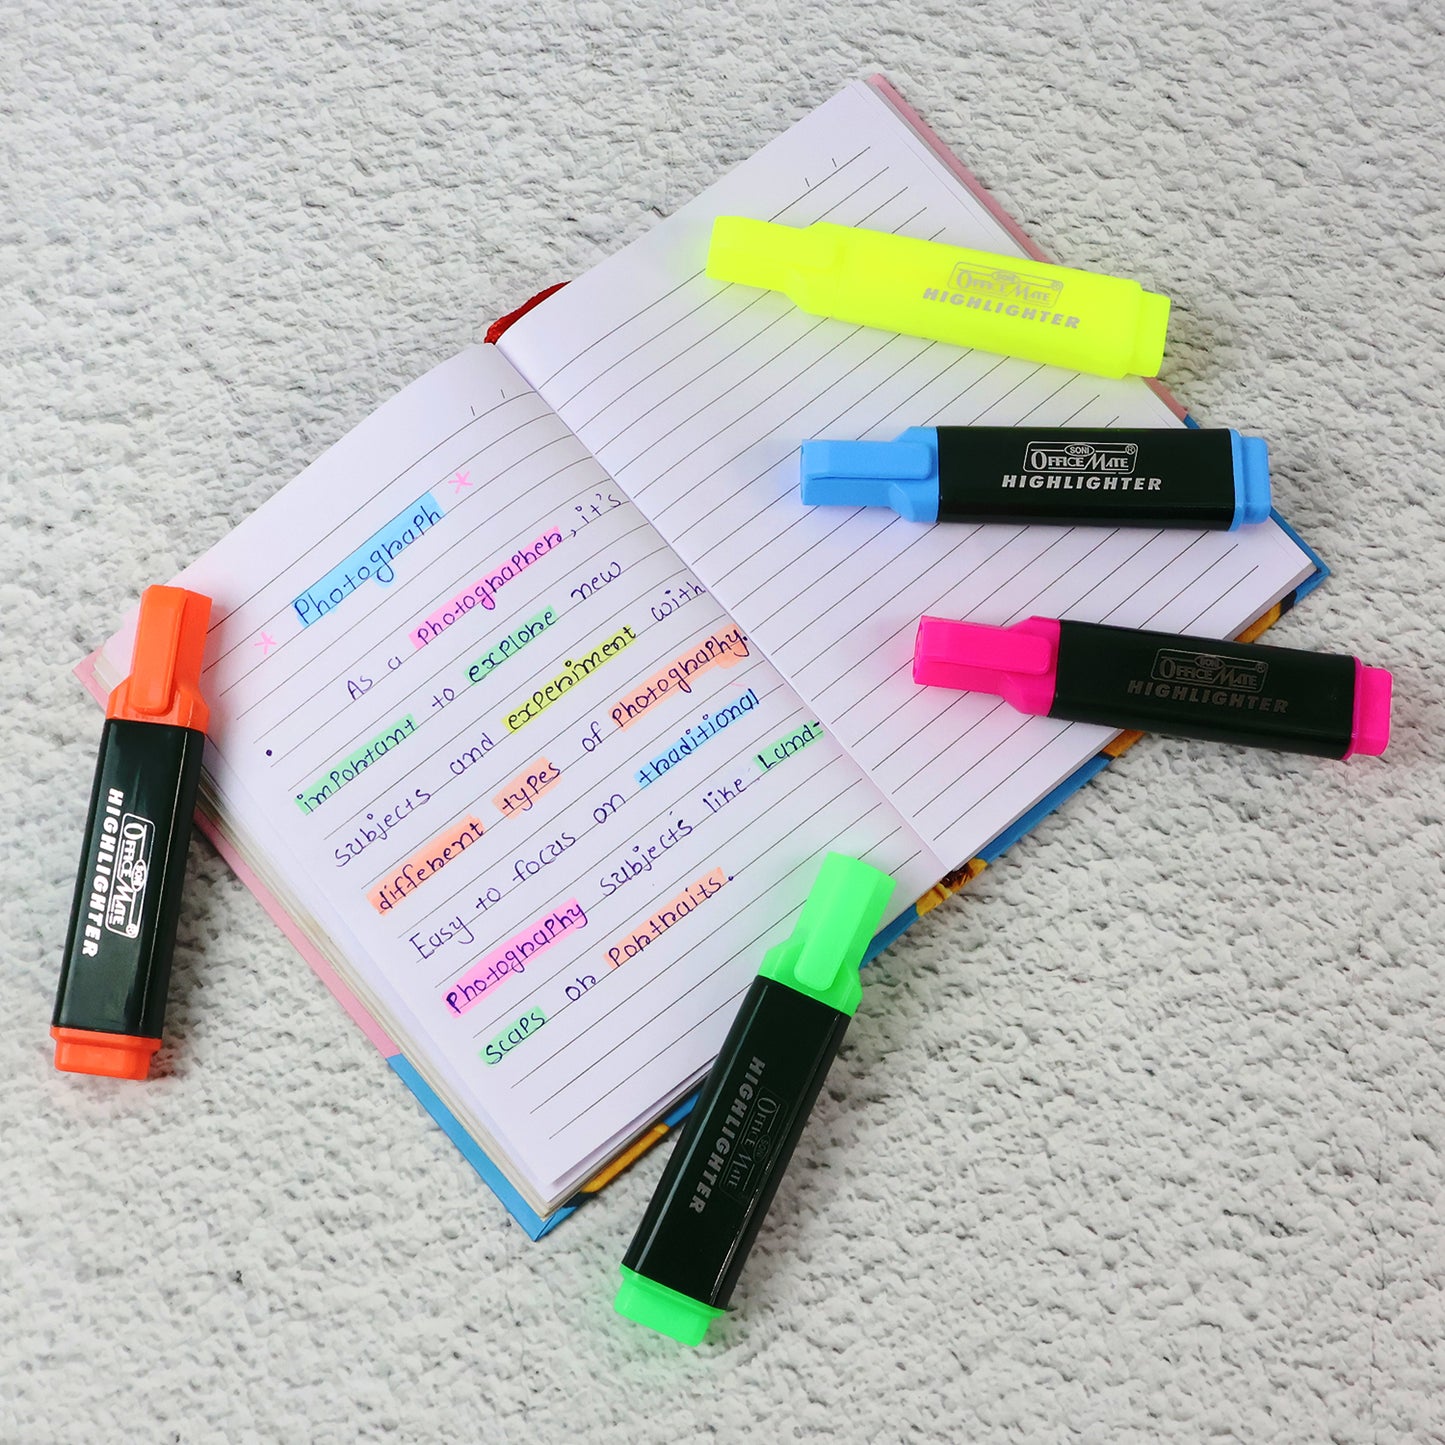 Photograph
As a photographer, it's
important to explore new
subjects and experiment with
different types of photography.
Easy to focus on traditional
photography subjects like Land-
scaps or Portraits.
SONI
OFFICE MATE
HIGHLIGHTER
SONI
OFFICE MATE
HIGHLIGHTER
SONI
OFFICE MATE
HIGHLIGHTER
SONI
OFFICE MATE
HIGHLIGHTER
SONI
OFFICE MATE
HIGHLIGHTER